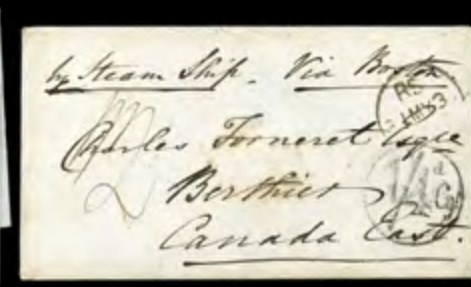 by Steam Ship. Via Boston
Charles Forneret Esqre
Berthier
Canada East.